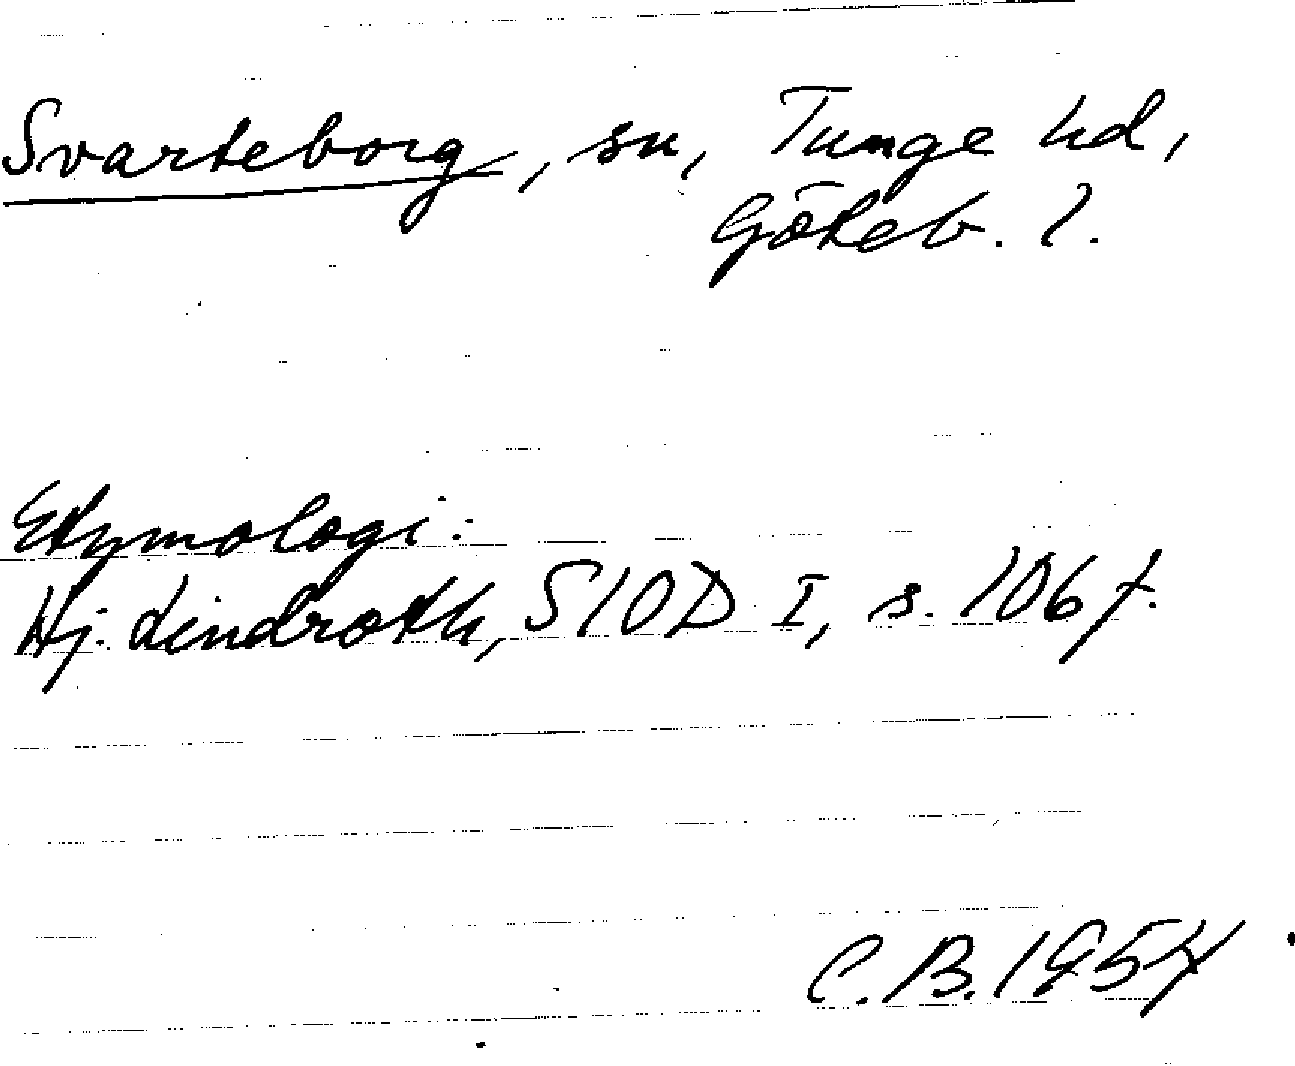 Svarteborg, sn, Tunge hd,
Göteb. l.
Etymologi:
Hj. Lindroth, SIOD I, s. 106 f.
C.B. 1954